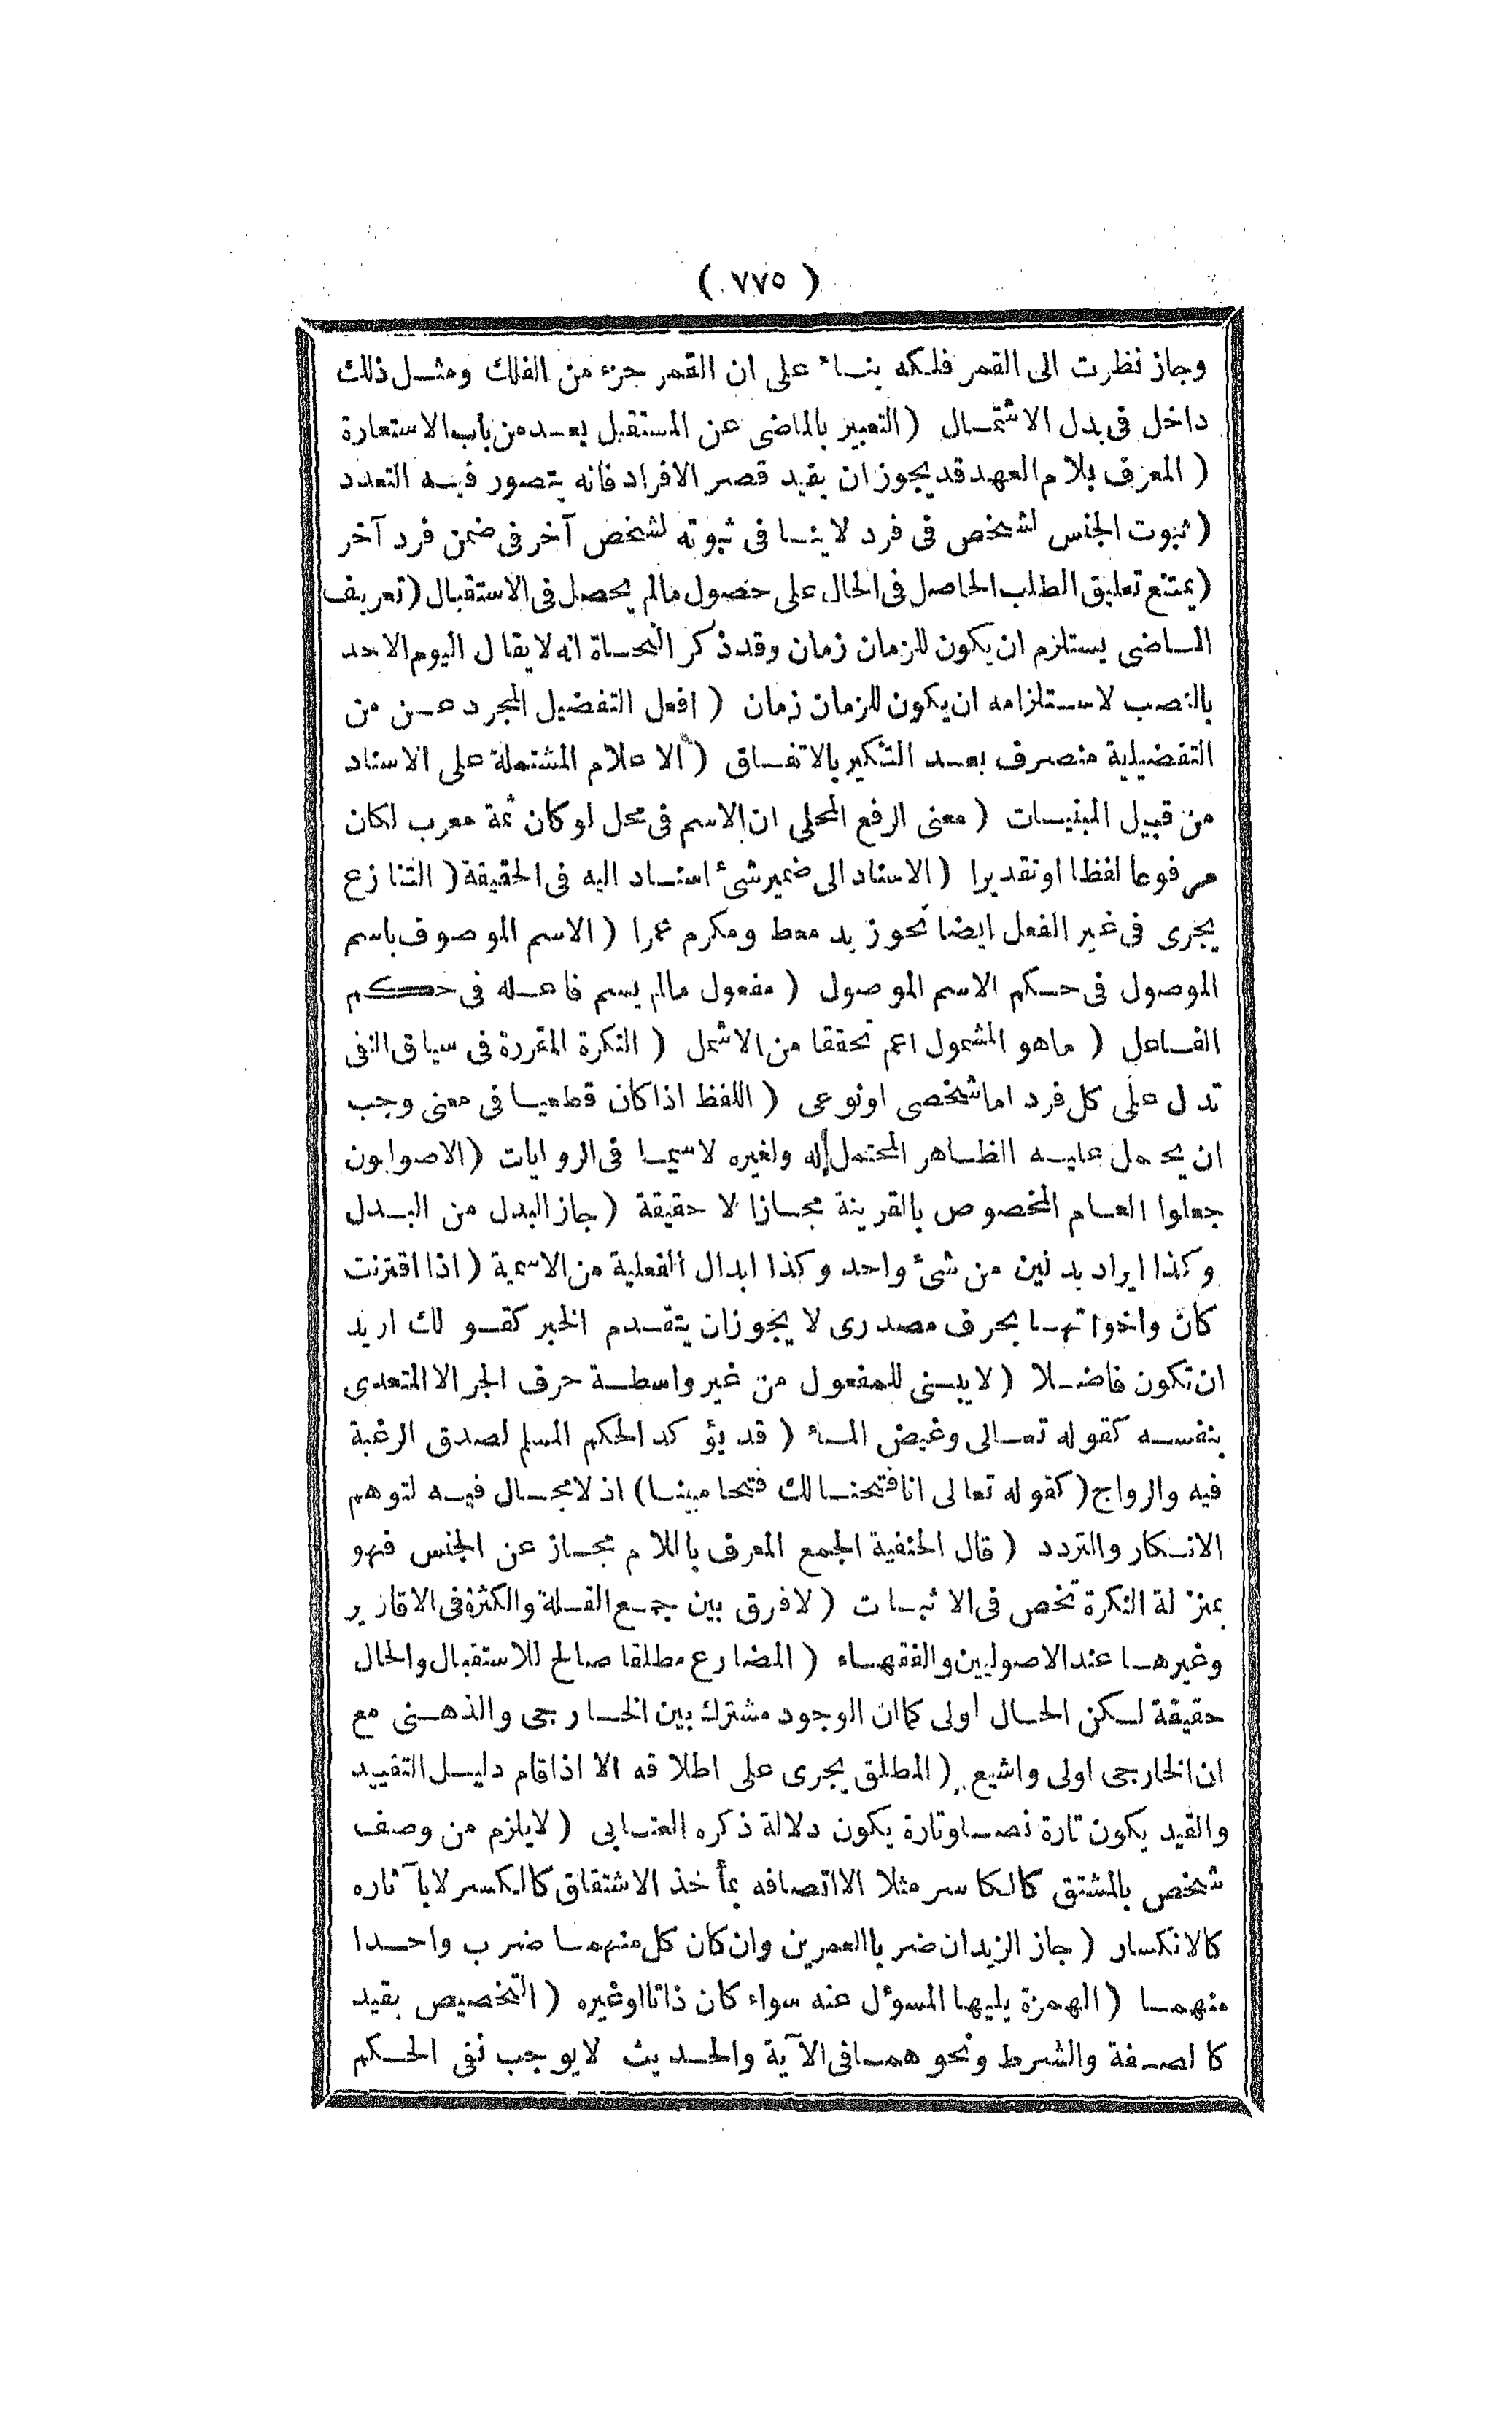 ( ٧٧٥ )
وجاز نظرت الى القمر فلكه بناء على ان القمر جزء من الفلك ومثل ذلك
داخل فى بدل الاشتمال ( التعبير بالماضى عن المستقبل يعد من باب الاستعارة
( المعرف بلام العهد قد يجوز ان يفيد قصر الافراد فانه يتصور فيه التعدد
( ثبوت الجنس لشخص فى فرد لا ينافى ثبوته لشخص آخر فى ضمن فرد آخر
( يمتنع تعليق الطلب الحاصل فى الحال على حصول مالم يحصل فى الاستقبال ( تعريف
الماضى يستلزم ان يكون للزمان زمان وقد ذكر النحاة انه لا يقال اليوم الاحد
بالنصب لاستلزامه ان يكون للزمان زمان ( افعل التفضيل المجرد عن من
التفضيلية منصرف بعد التنكير بالاتفاق ( الاعلام المشتملة على الاسناد
من قبيل المبنيات ( معنى الرفع المحلى ان الاسم فى محل لو كان ثمة معرب لكان
مرفوعا لفظا او تقديرا ( الاسناد الى ضمير شئ اسناد اليه فى الحقيقة ( التنازع
يجرى فى غير الفعل ايضا نحو زيد معط ومكرم عمرا ( الاسم الموصوف باسم
الموصول فى حكم الاسم الموصول ( مفعول مالم يسم فاعله فى حكم
الفاعل ( ماهو المشمول اعم تحققا من الاشمل ( النكرة المقررة فى سياق النفى
تدل على كل فرد اما شخصى او نوعى ( اللفظ اذا كان قطعيا فى معنى وجب
ان يحمل عليه الظاهر المحتمل له ولغيره لاسيما فى الروايات ( الاصوليون
جعلوا العام المخصوص بالقرينة مجازا لا حقيقة ( جاز البدل من البدل
وكذا ايراد بدلين من شئ واحد وكذا ابدال الفعلية من الاسمية ( اذا اقترنت
كان واخواتها بحرف مصدرى لا يجوز ان يتقدم الخبر كقولك اريد
ان تكون فاضلا ( لا يبنى للمفعول من غير واسطة حرف الجر الا المتعدى
بنفسه كقوله تعالى وغيض الماء ( قد يؤكد الحكم المسلم لصدق الرغبة
فيه والرواج ( كقوله تعالى انا فتحنا لك فتحا مبينا ) اذ لا مجال فيه لتوهم
الانكار والتردد ( قال الحنفية الجمع المعرف باللام مجاز عن الجنس فهو
بمنزلة النكرة تخص فى الاثبات ( لا فرق بين جمع القلة والكثرة فى الاقارير
وغيرها عند الاصوليين والفقهاء ( المضارع مطلقا صالح للاستقبال والحال
حقيقة لكن الحال اولى كما ان الوجود مشترك بين الخارجى والذهنى مع
ان الخارجى اولى واشيع ( المطلق يجرى على اطلاقه الا اذا قام دليل التقييد
والقيد يكون تارة نصا وتارة يكون دلالة ذكره العتابى ( لا يلزم من وصف
شخص بالمشتق كالكاسر مثلا الا اتصافه بمأخذ الاشتقاق كالكسر لا بآثاره
كالانكسار ( جاز الزيدان ضربا العمرين وان كان كل منهما ضرب واحدا
منهما ( الهمزة يليها المسؤل عنه سواء كان ذاتا او غيره ( التخصيص بقيد
كالصفة والشرط ونحوهما فى الآية والحديث لا يوجب نفى الحكم